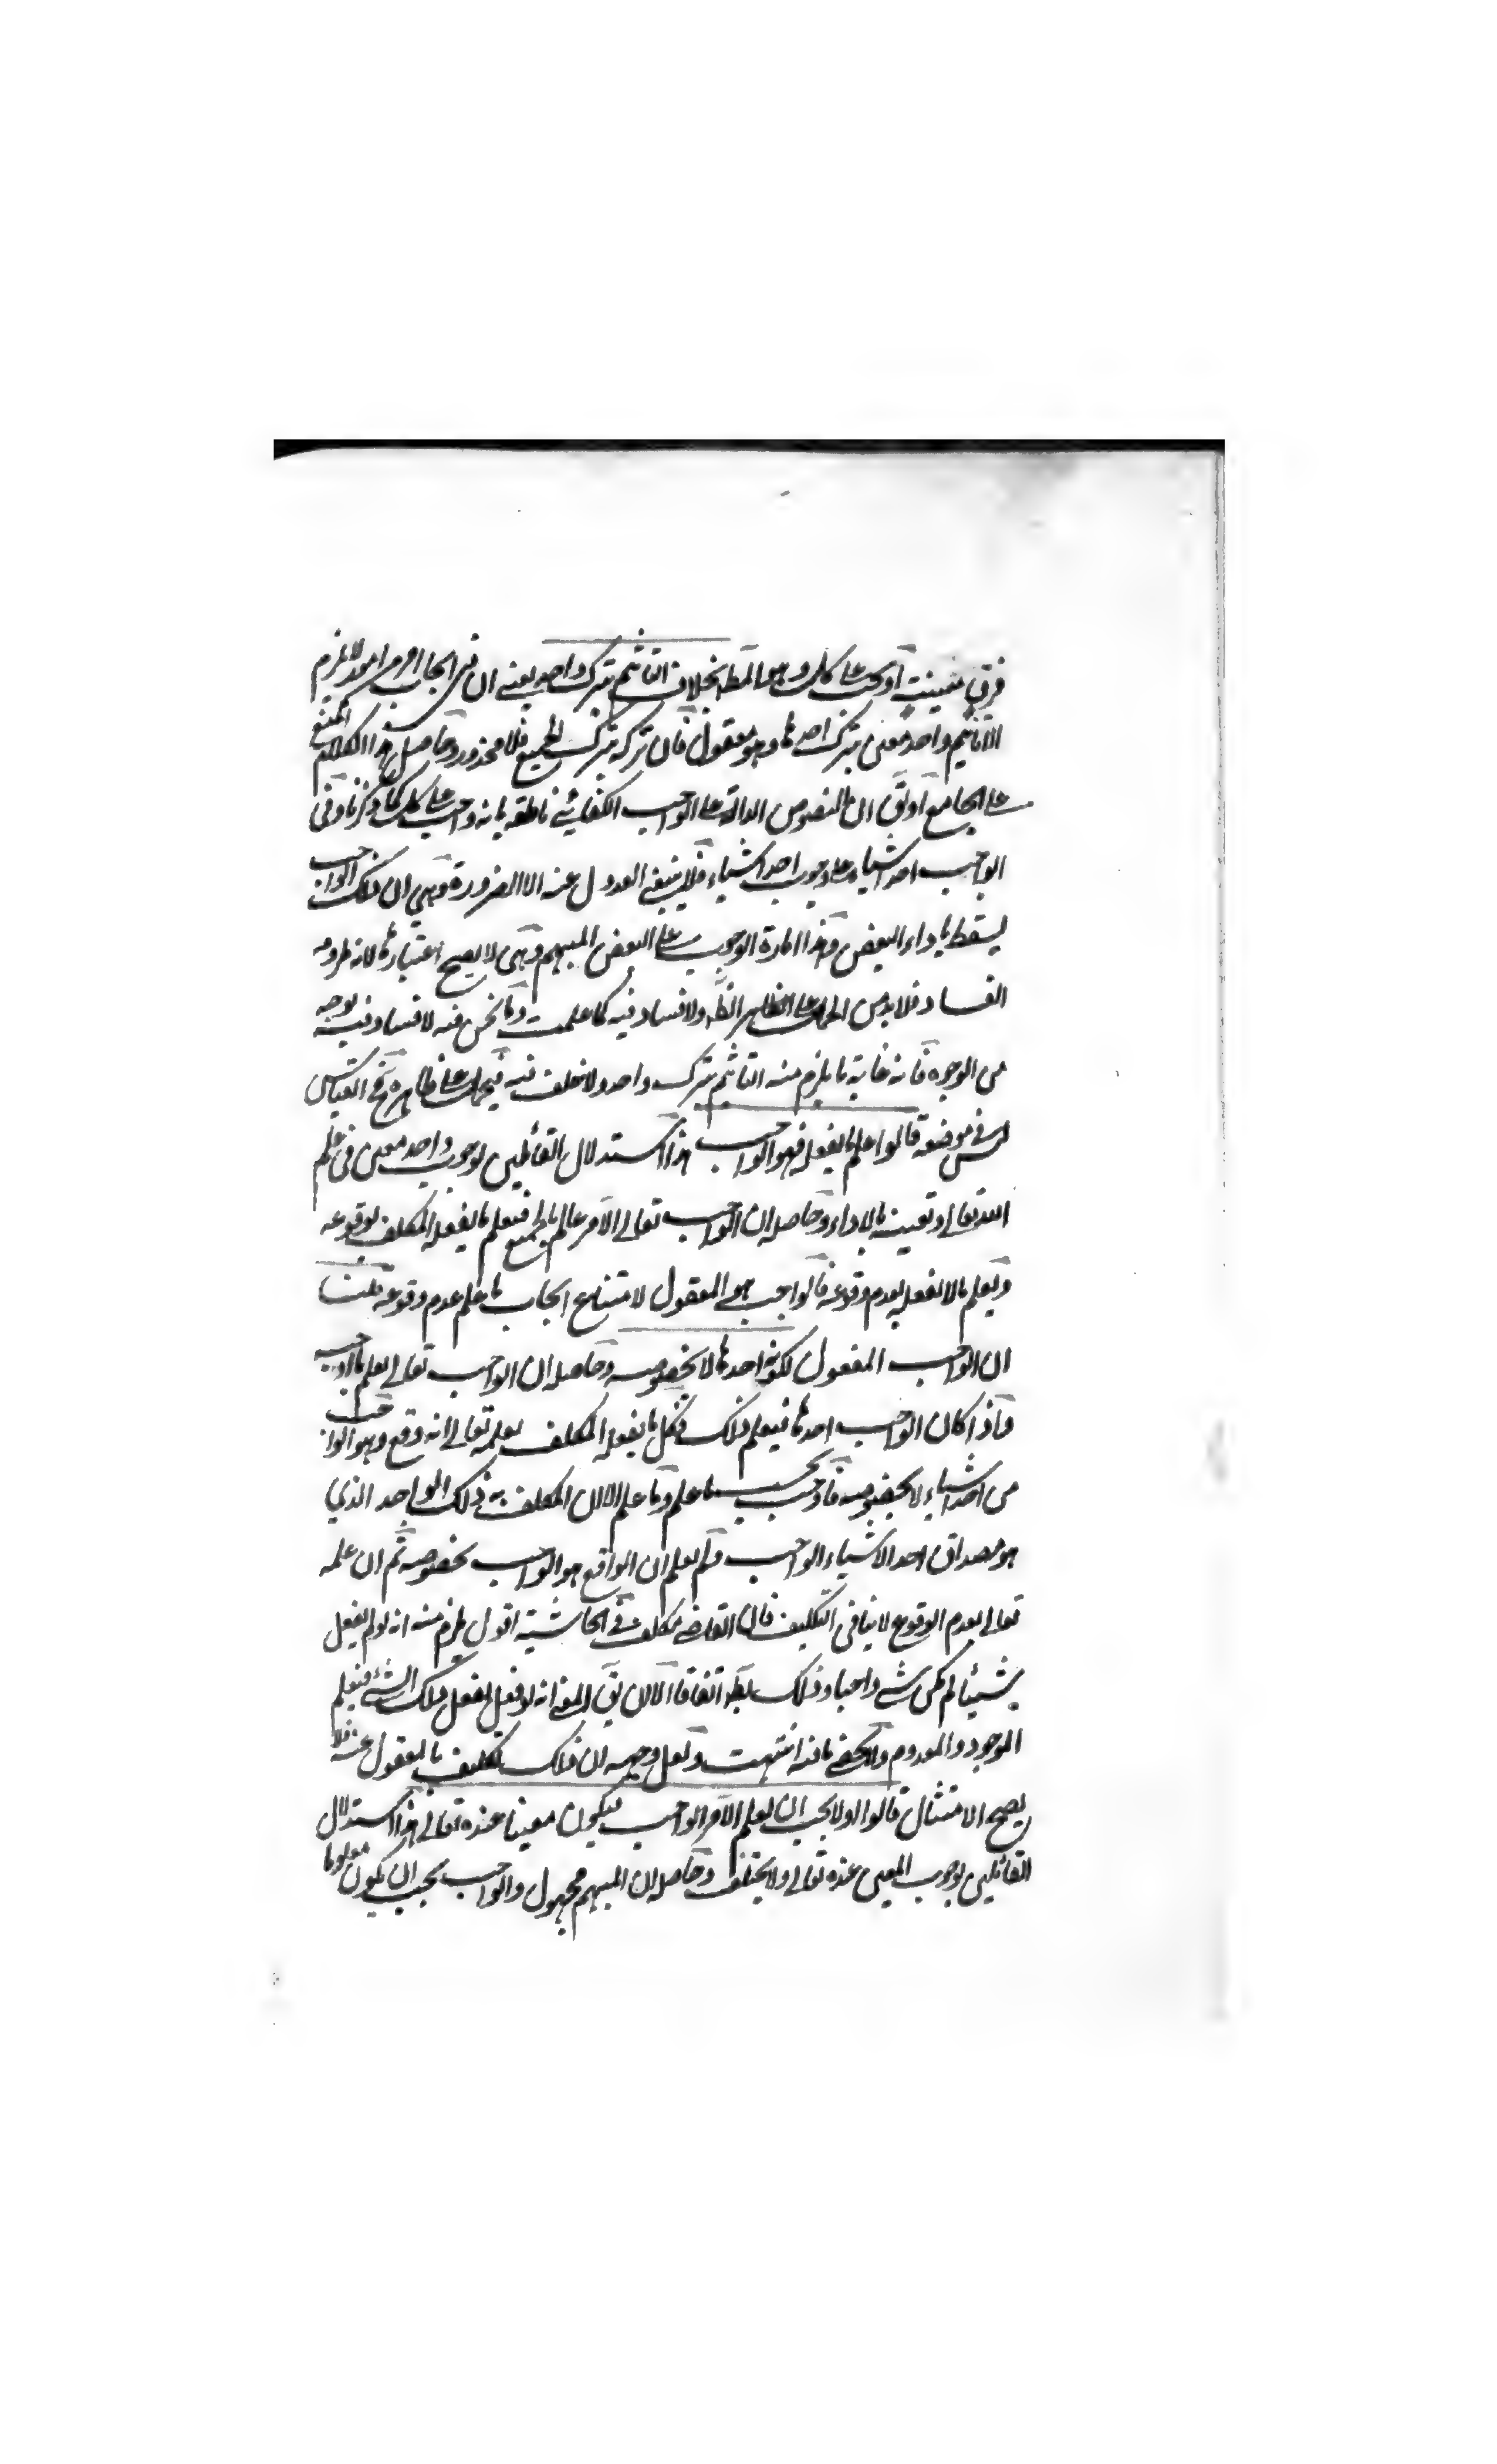 فرق معينة او يجب على كل وهو المط بخلاف التأثيم بترك واحد يعني ان في ايجاب امر من امور لا يلزم
الا تأثيم واحد معين بترك احدها وهو معقول فان تركه بترك الجميع فلا محذور وحاصل هذا الكلام المنع
على الجامع اولق ان النصوص الدالة على الواجب الكفائي ناطقة بانه واجب على كل كما ذكرنا وفي
الواجب احد اشياء على وجوب احد اشياء فلا ينبغي العدول عنه الا الضرورة وهي ان ذلك الواجب
يسقط باداء البعض وهذا امارة الوجوب على البعض المبهم وهي لا يصح اعتبارها لانه ملزومه
الفساد فلا بد من الحمل على الظاهر ولا فساد فيه كما علمت وما نحن فيه لا فساد فيه بوجه
من الوجوه فانه غاية ما يلزم منه التأثيم بترك واحد ولا خلف فيه فيحمل على ظاهره فح القياس
ليس في موضعه قالوا علم ما يفعله فهو الواجب هذا استدلال القائلين لوجوب واحد معين في علم
الله تعالى وتعينه بالاداء وحاصله ان الواجب تعالى الآمر عالم بالجميع فيعلم ما يفعله المكلف بوقوعه
ويعلم ما لا يفعله بعدم وقوعه فالواجب هو المفعول لامتناع ايجاب ما علم عدم وقوعه قلنا
ان الواجب المفعول لكونه احدها لا بخصوصه وحاصله ان الواجب تعالى يعلم ما اوجبه
فاذا كان الواجب احدها فيعلم ذلك فكل ما يفعله المكلف يعلمه تعالى انه وقع وهو الواجب
من احد اشياء لا بخصوصه فاوجب بحسب ما علم وما علم الا ان المكلف به ذلك الواحد الذي
هو مصداق احد الاشياء الواجب فلم يعلم ان الواقع هو الواجب بخصوصه ثم ان علمه
تعالى بعدم الوقوع لا ينافي التكليف قال القاضي مكلف في الحاشية اقول يلزم منه انه لو لم يفعل
شيئا لم يكن شيء واجبا وذلك بط اتفاقا الا ان يق المعنى انه لو فعل لفعل ذلك الشيء فيعلم
الموجود والمعدوم ولا يخفى ما فيه انتهت ولعل وجهه ان ذلك تكليف بالمفعول عنه فلا
يصح الامتثال قالوا اولا يجب ان يعلم الآمر الواجب فيكون معينا عنده تعالى هذا استدلال
القائلين بوجوب المعين عنده تعالى ولا يختلف وحاصله ان المبهم مجهول والواجب يجب ان يكون معلوما